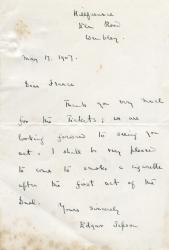 Hillgrance
Ken Road
Wembley.
May 17. 1907.
Dear Grace
Thank you very much
for the tickets; we are
looking forward to seeing you
act. I shall be very pleased
to come to smoke a cigarette
after the first act of the
Duel.
Yours sincerely
Edgar Jepson